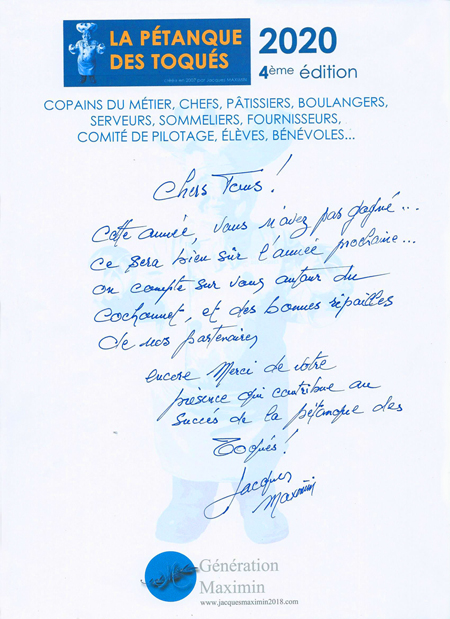 LA PÉTANQUE
DES TOQUÉS
2020
4ème édition
COPAINS DU MÉTIER, CHEFS, PÂTISSIERS, BOULANGERS,
SERVEURS, SOMMELIERS, FOURNISSEURS,
COMITÉ DE PILOTAGE, ÉLÈVES, BÉNÉVOLES...
Chers Tous!
Cette année, vous n'avez pas gagné...
ce sera bien sûr l'année prochaine...
on compte sur vous autour du
Cochonnet, et des bonnes ripailles
de nos partenaires
encore Merci de votre
présence qui contribue au
Succès de la pétanque des
Toqués!
Jacques
Maximin
Génération
Maximin
www.jacquesmaximin2018.com